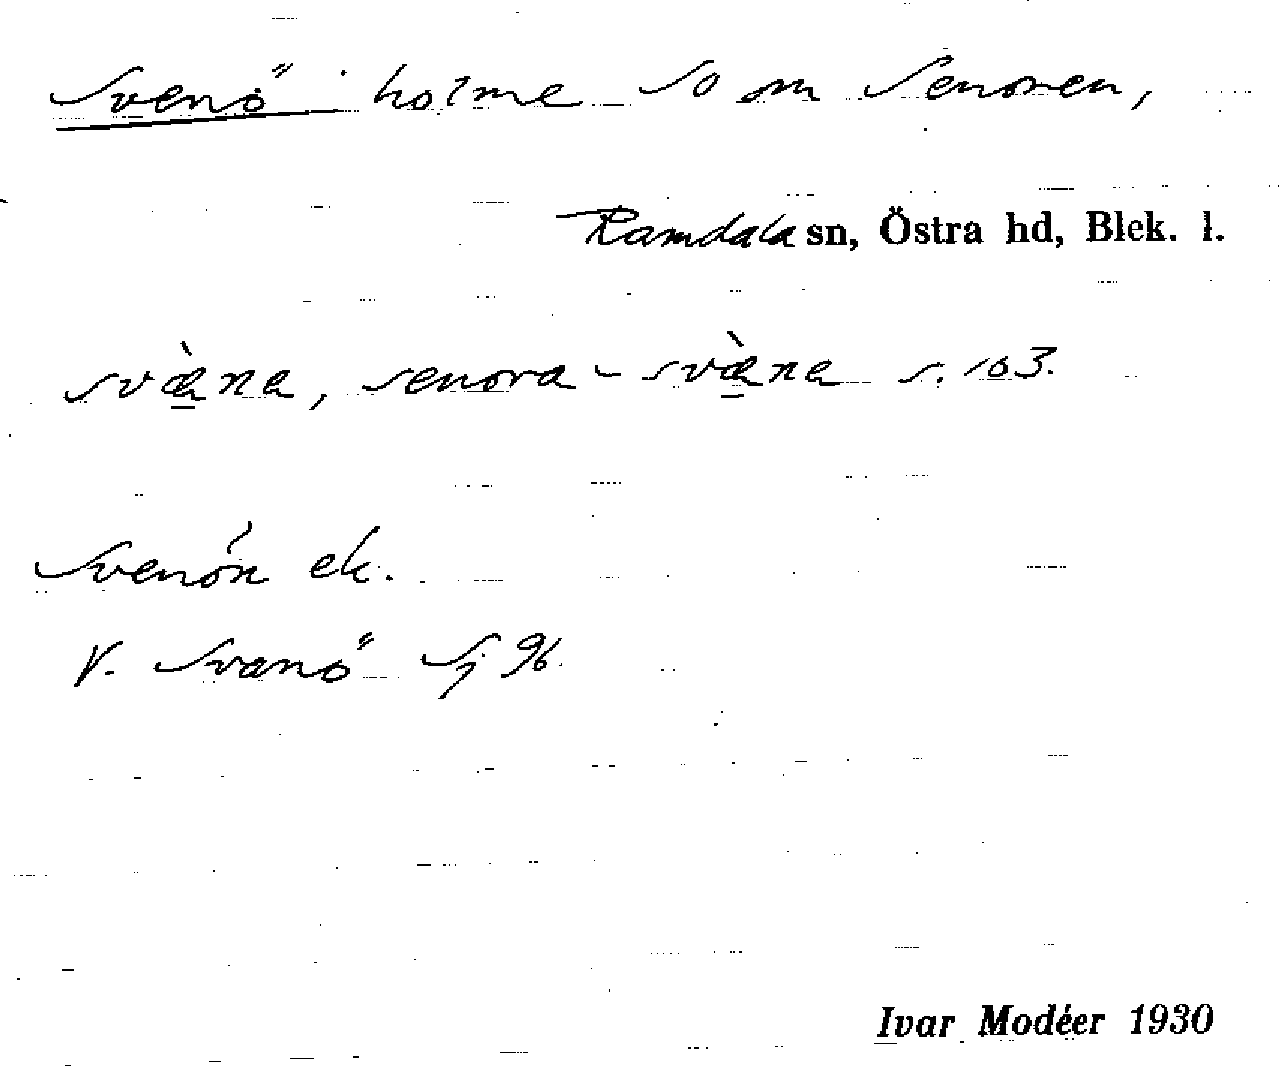 Svenö holme SO om Senoren,
Ramdala sn, Östra hd, Blek. l.
svæ̀na, senora-svæ̀na s. 103.
Svenön ek.
V. Svanö Sj 96.
Ivar Modéer 1930